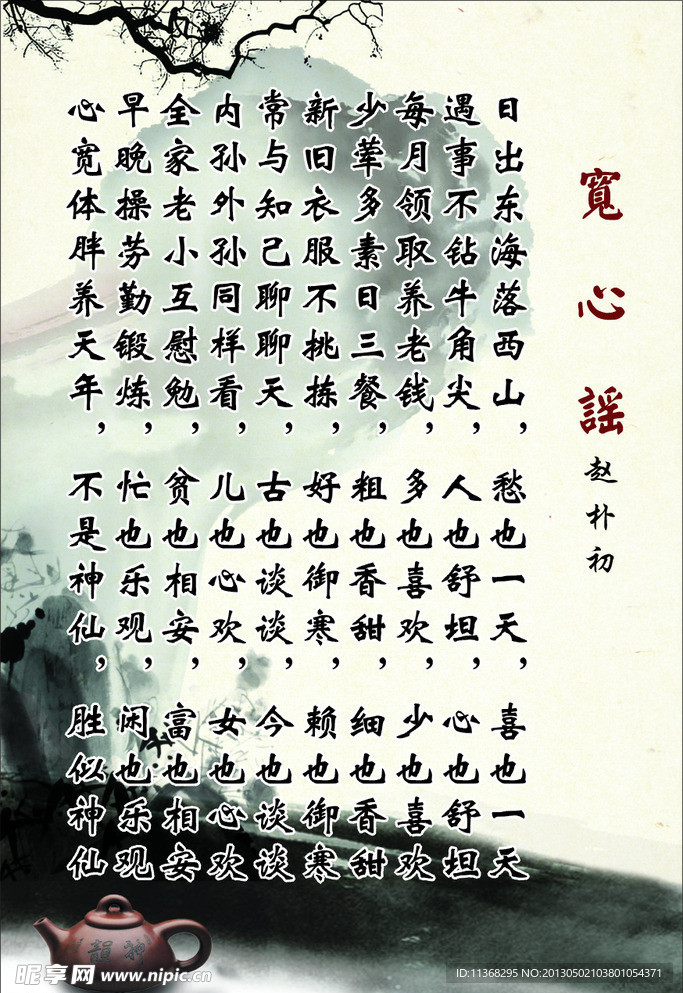 寬心謡
赵朴初
日出东海落西山，愁也一天，喜也一天
遇事不钻牛角尖，人也舒坦，心也舒坦
每月领取养老钱，多也喜欢，少也喜欢
少荤多素日三餐，粗也香甜，细也香甜
新旧衣服不挑拣，好也御寒，赖也御寒
常与知己聊聊天，古也谈谈，今也谈谈
内孙外孙同样看，儿也心欢，女也心欢
全家老小互慰勉，贫也相安，富也相安
早晚操劳勤锻炼，忙也乐观，闲也乐观
心宽体胖养天年，不是神仙，胜似神仙
韻神
昵享网 www.nipic.cn
ID:11368295 NO:20130502103801054371